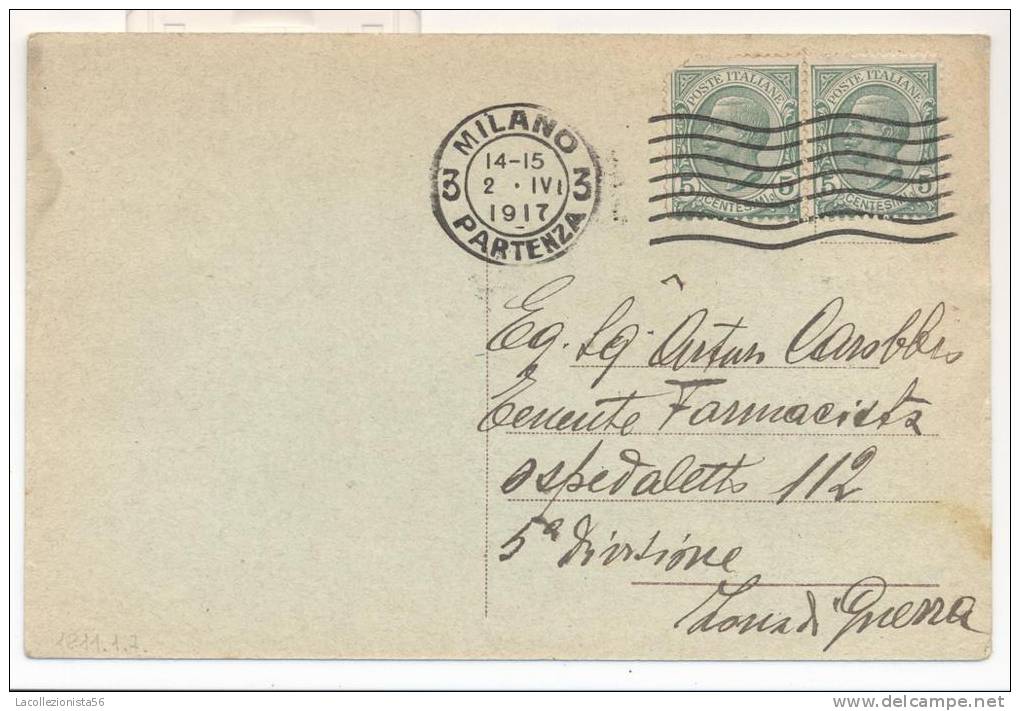 POSTE ITALIANE POSTE ITALIANE
5 5 5 5
CENTESIMI CENTESIMI
MILANO
3 14-15 3
2 · IV
1917
PARTENZA
Eg. Sg. Artur Carobbio
Tenente Farmacista
ospedaletto 112
5ª Divisione
Zona di Guerra
1811.1.7.
Lacollezionista56
www.delcampe.net